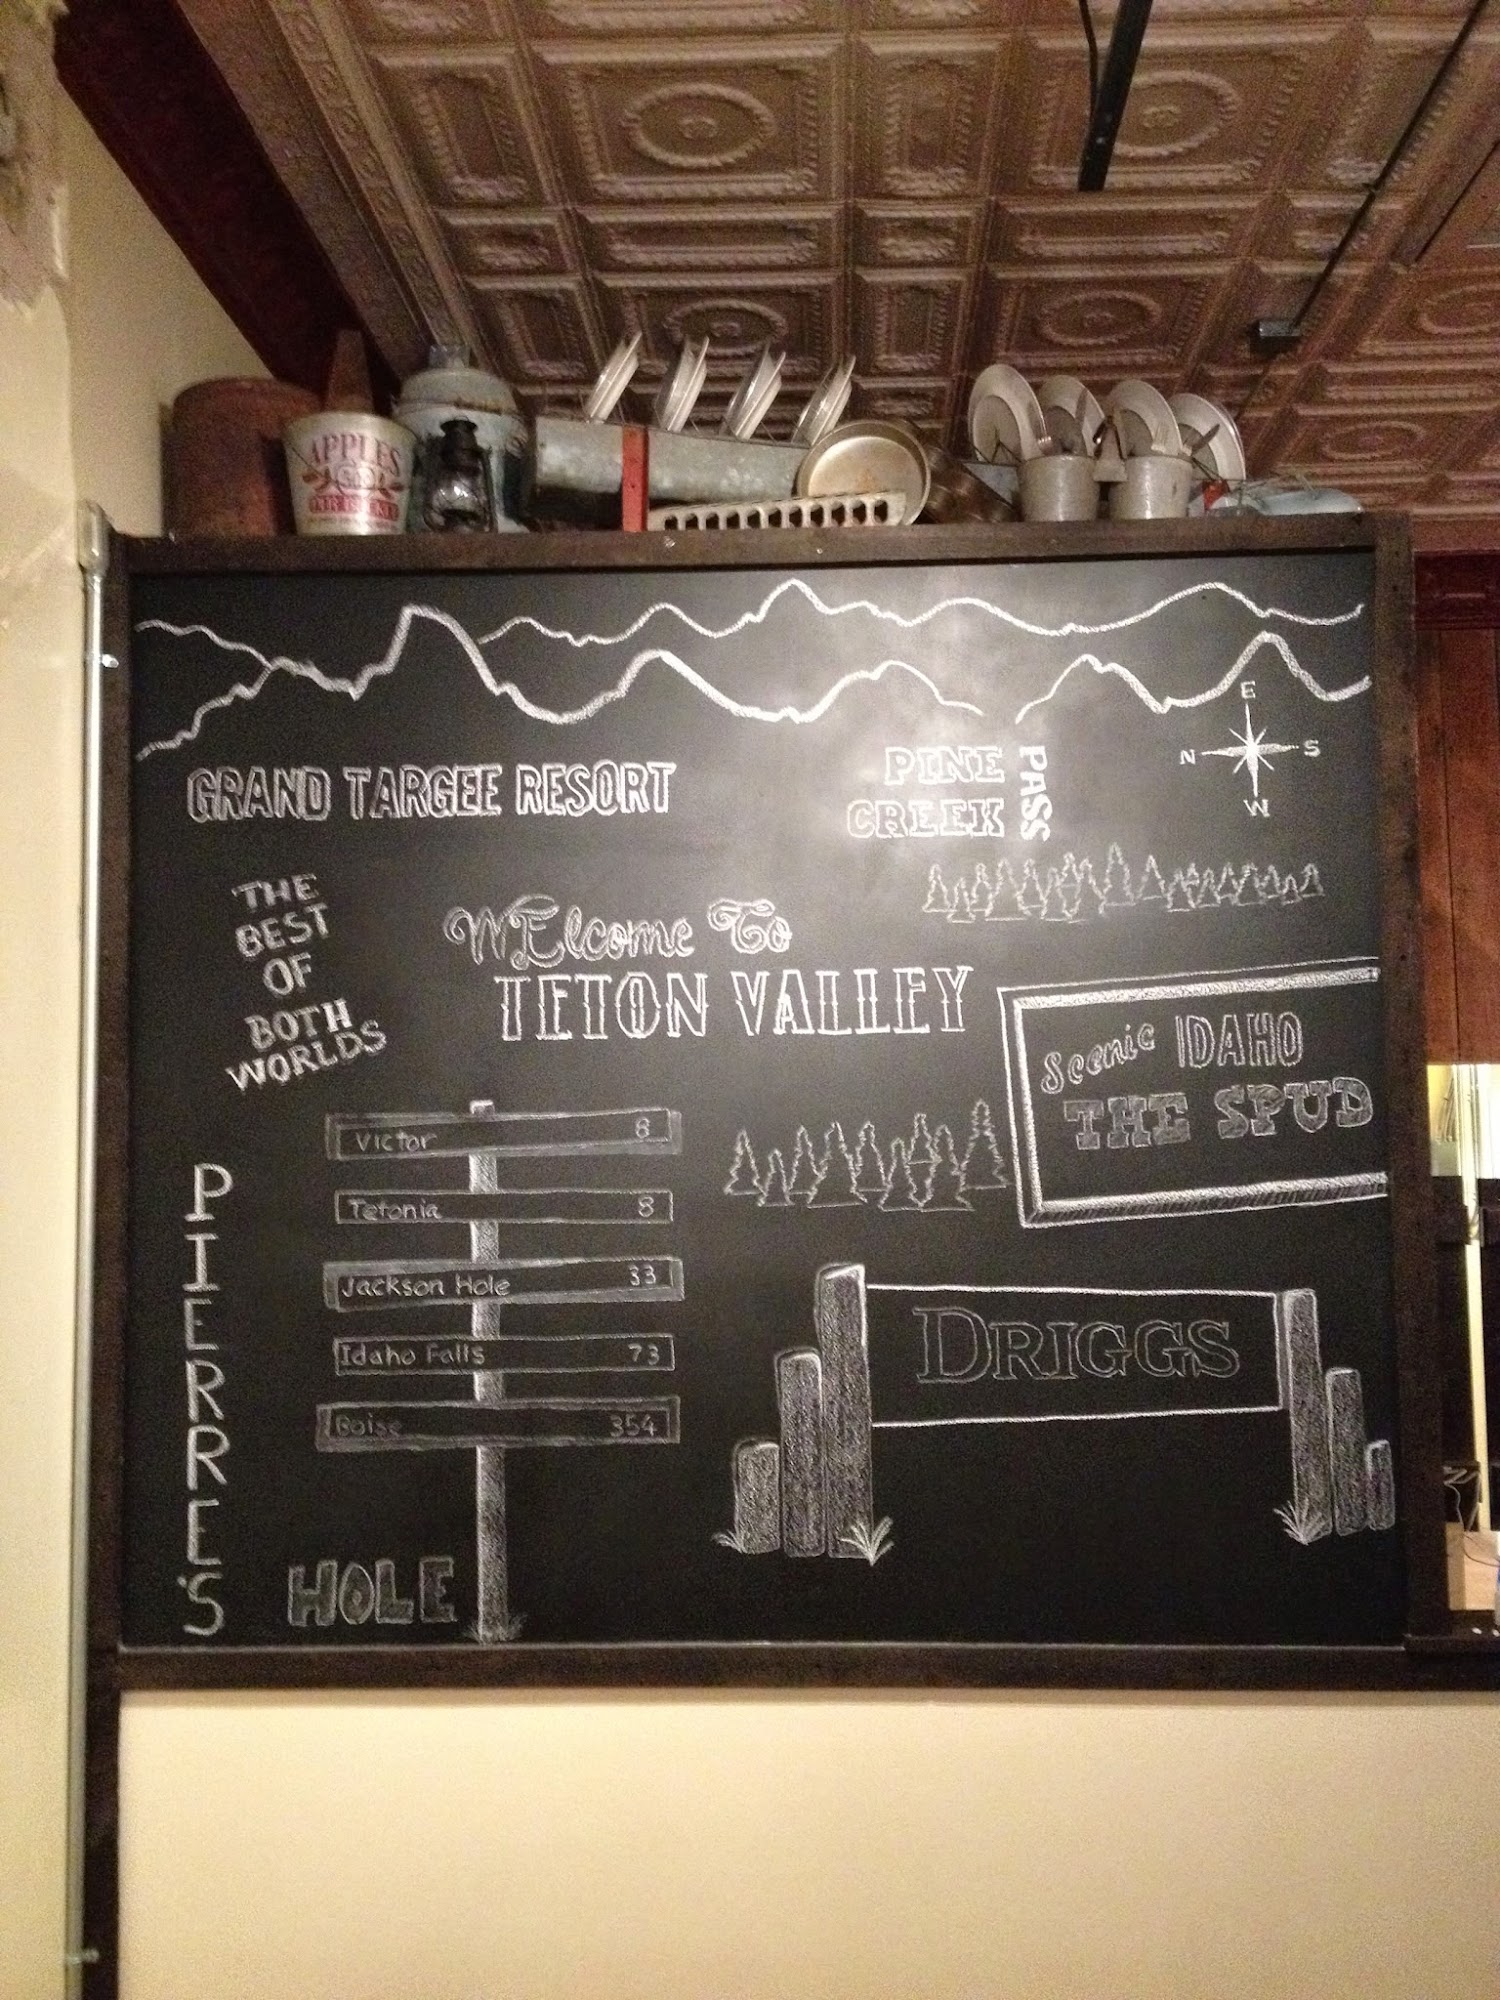 APPLES
GRAND TARGEE RESORT
PINE
CREEK
PASS
E
N S
W
THE
BEST
OF
BOTH
WORLDS
WElcome To
TETON VALLEY
Scenic IDAHO
THE SPUD
Victor 8
Tetonia 8
Jackson Hole 33
Idaho Falls 73
Boise 354
DRIGGS
PIERRE'S
HOLE